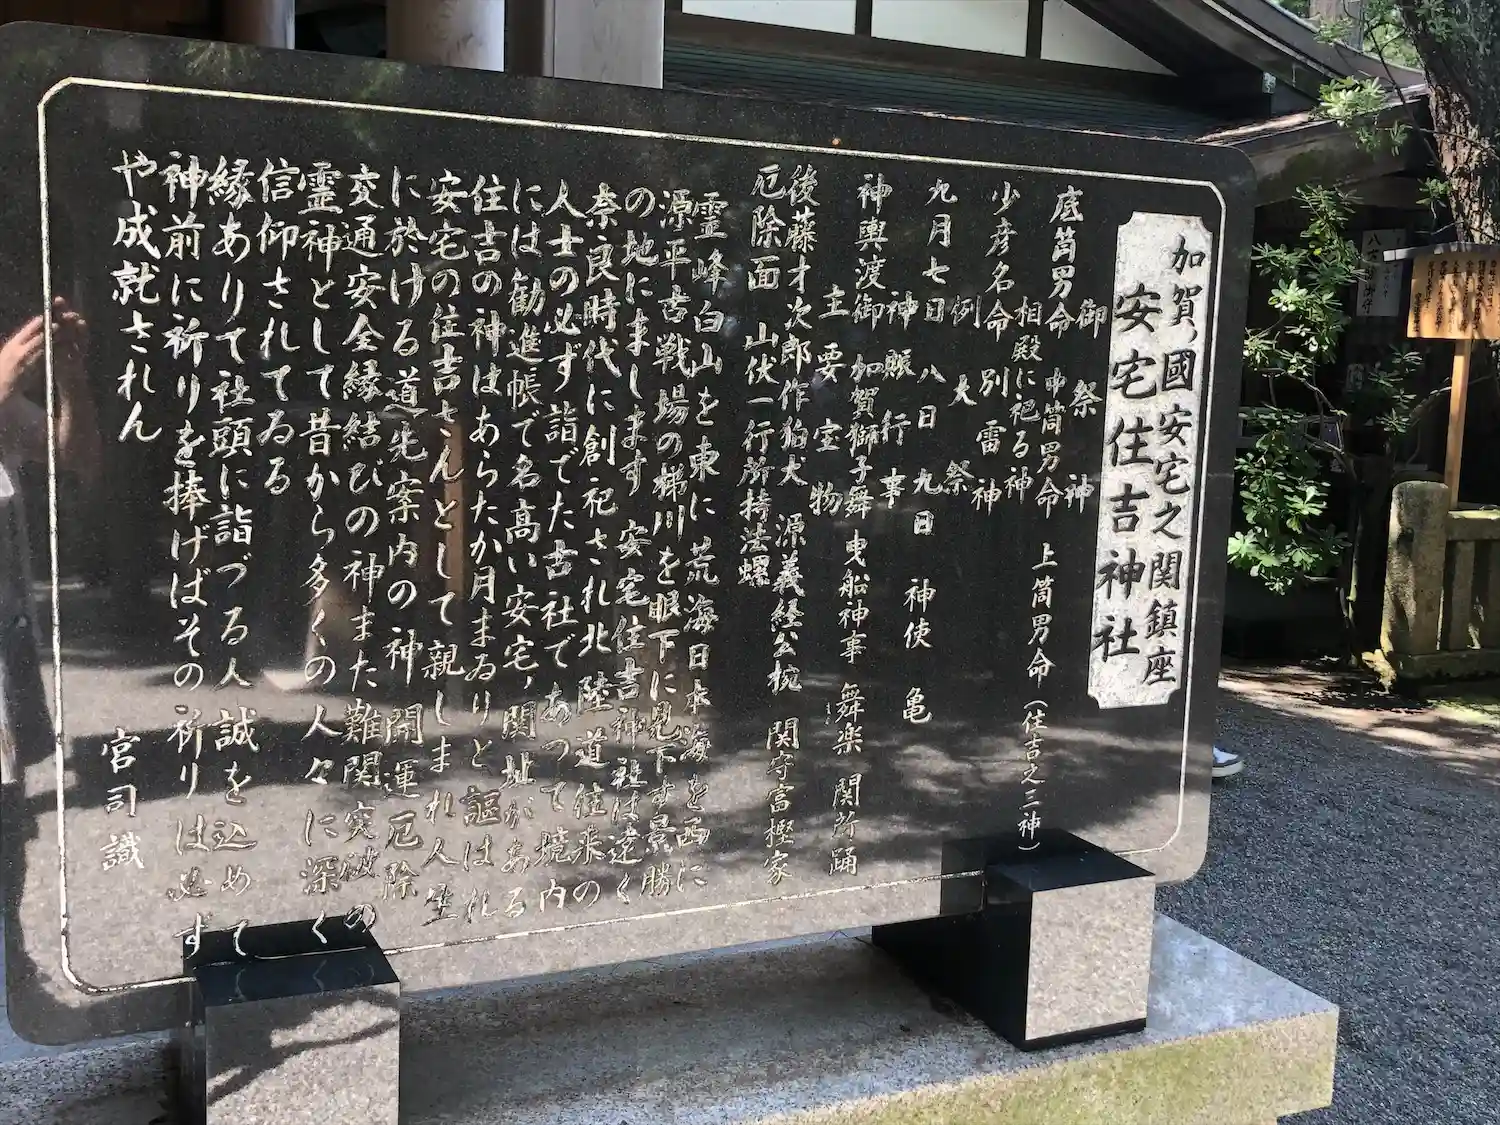 加賀ノ國安宅之関鎮座
安宅住吉神社
御祭神
底筒男命 中筒男命 上筒男命（住吉之三神）
相殿に祀る神
少彦名命 別雷神
例大祭
九月七日 八日 九日 神使 亀
神賑行事
神輿渡御 加賀獅子舞 曳船神事 舞楽 関所踊
主要宝物
後藤才次郎作狛犬 源義経公椀 関守富樫家
厄除面 山伏一行所持法螺
霊峰白山を東に荒海日本海を西に
源平古戦場の梯川を眼下に見下す景勝
の地にまします 安宅住吉神社は遠く
奈良時代に創祀され北陸道往来の
人士の必ず詣でた古社であつて境内
には勧進帳で名高い安宅ノ関址がある
住吉の神はあらたか月まゐりと謳はれ
安宅の住吉さんとして親しまれ人生
に於ける道先案内の神 開運厄除
交通安全縁結びの神また難関突破の
霊神として昔から多くの人々に深く
信仰されてゐる
縁ありて社頭に詣づる人誠を込めて
神前に祈りを捧げばその祈りは必ず
や成就されん
宮司 識